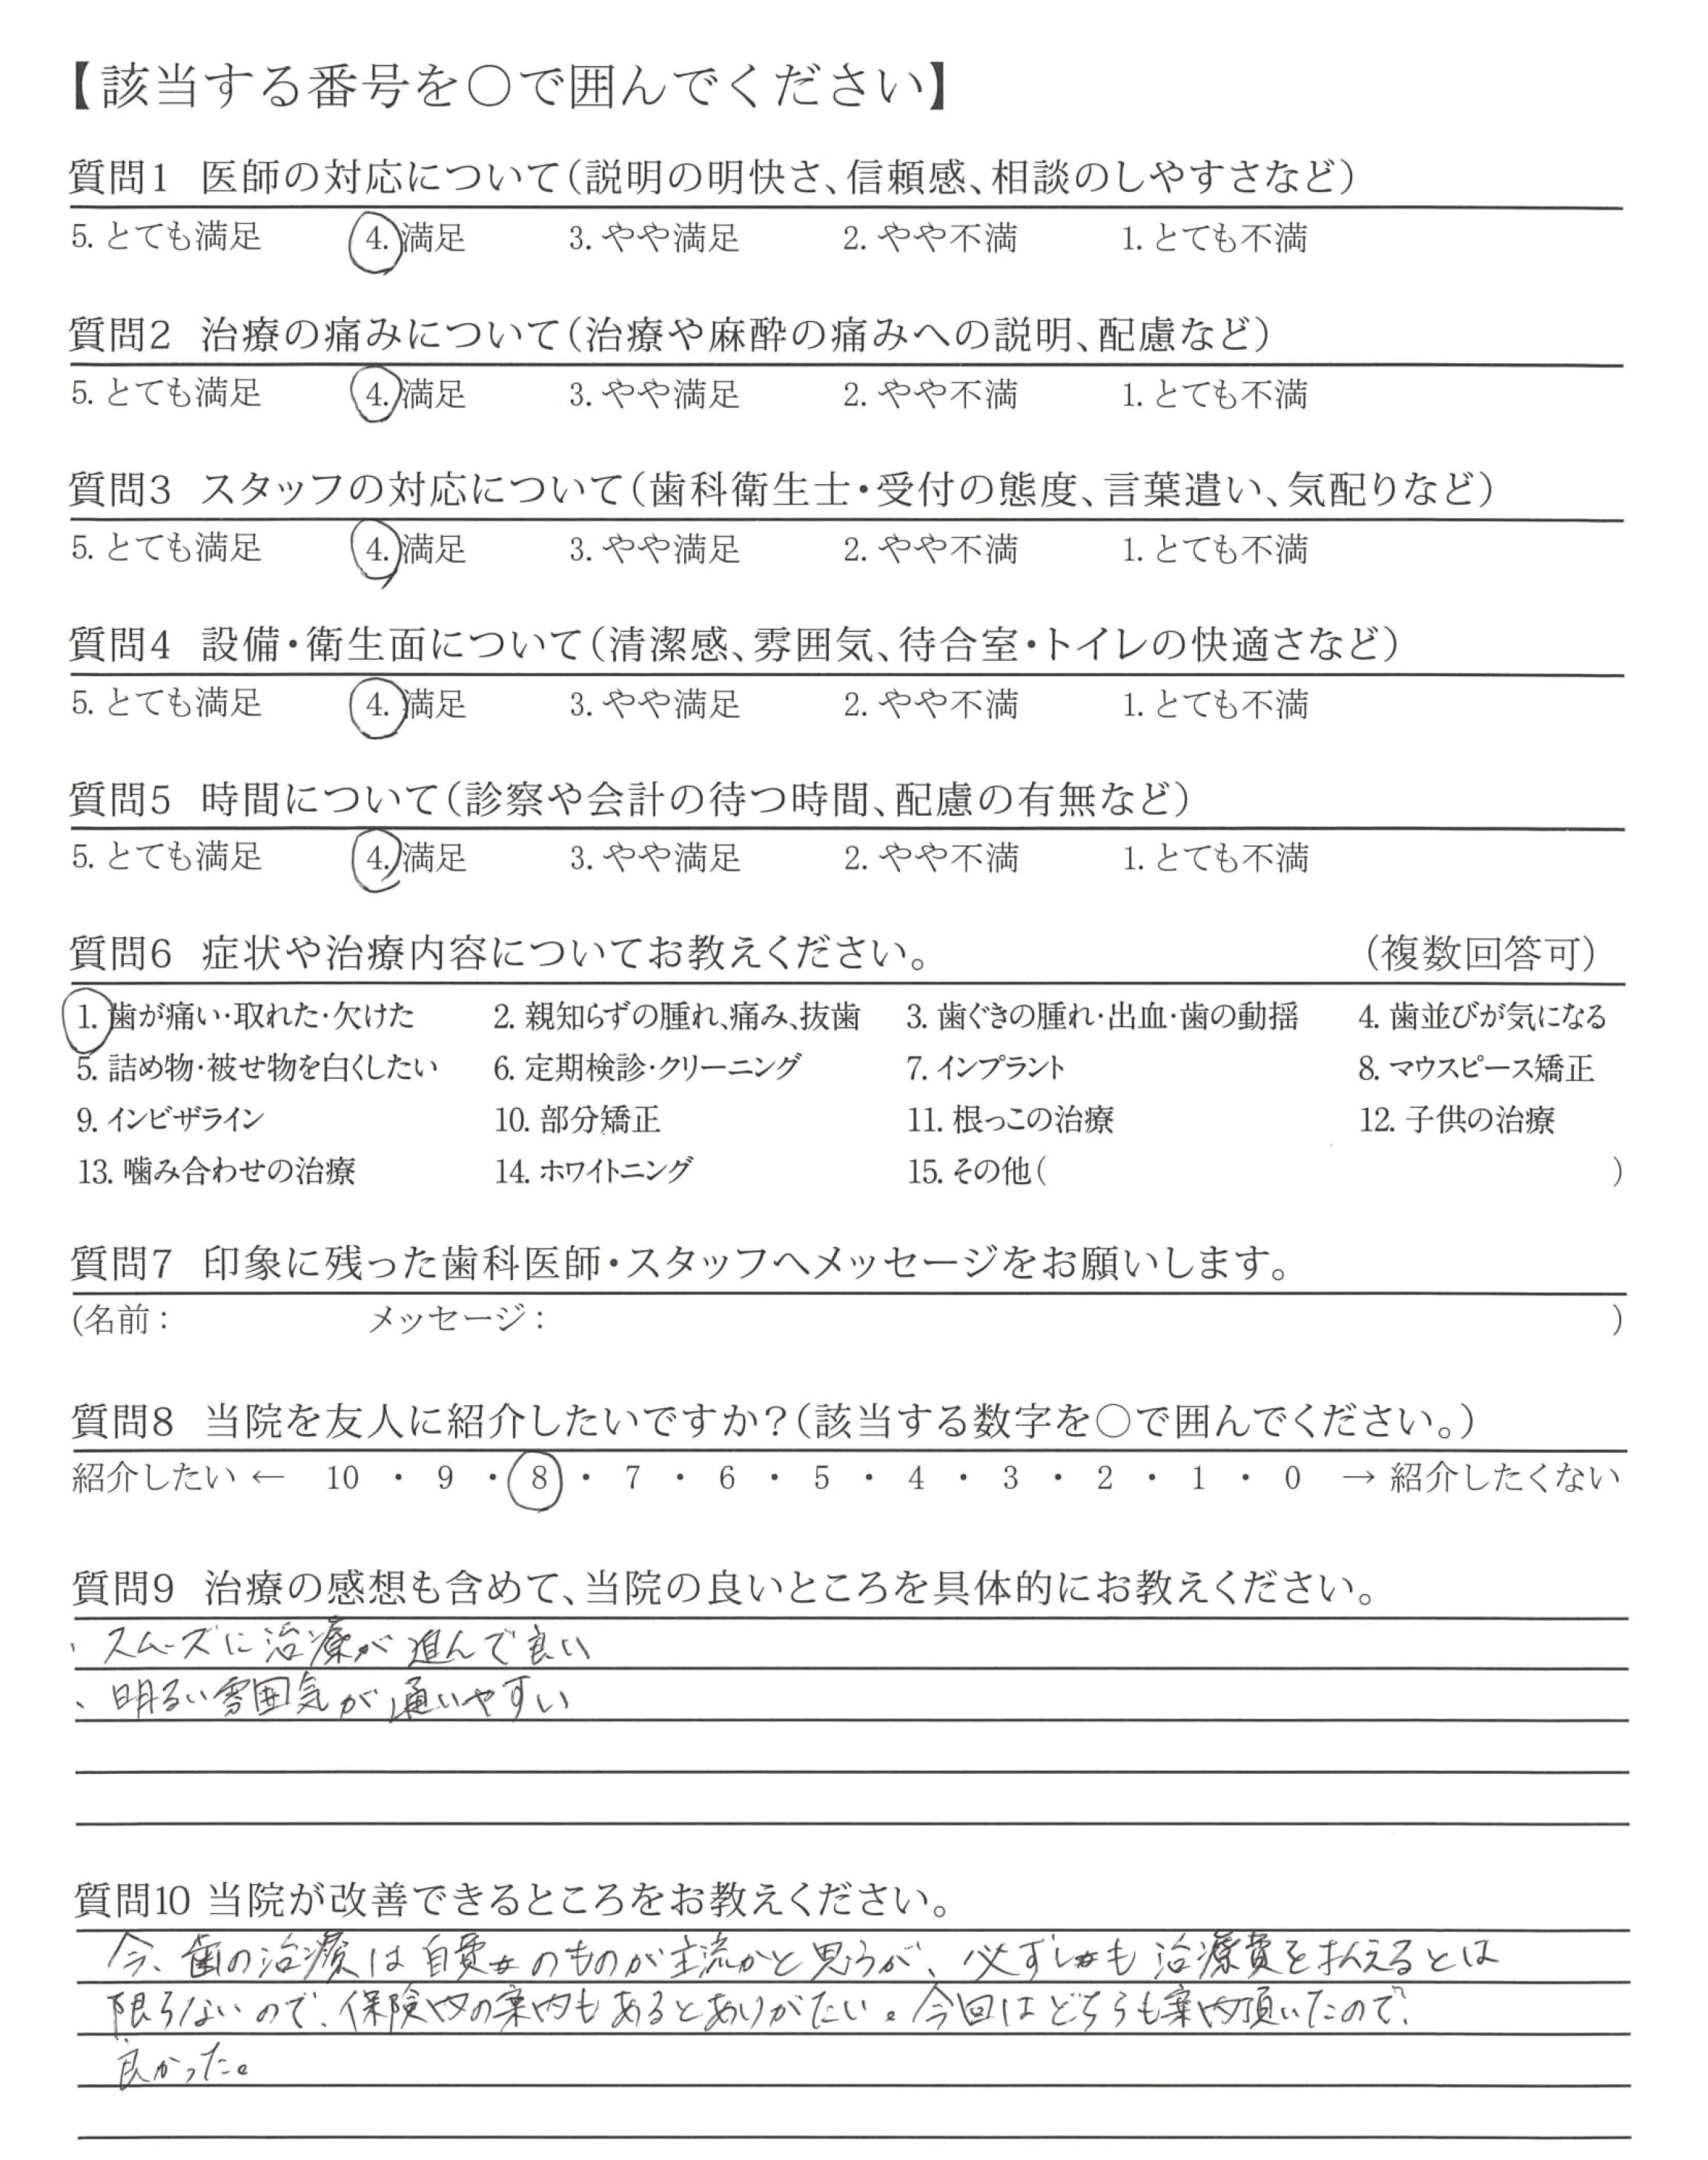 【該当する番号を○で囲んでください】
質問1 医師の対応について（説明の明快さ、信頼感、相談のしやすさなど）
5. とても満足 4. 満足 3. やや満足 2. やや不満 1. とても不満
質問2 治療の痛みについて（治療や麻酔の痛みへの説明、配慮など）
5. とても満足 4. 満足 3. やや満足 2. やや不満 1. とても不満
質問3 スタッフの対応について（歯科衛生士・受付の態度、言葉遣い、気配りなど）
5. とても満足 4. 満足 3. やや満足 2. やや不満 1. とても不満
質問4 設備・衛生面について（清潔感、雰囲気、待合室・トイレの快適さなど）
5. とても満足 4. 満足 3. やや満足 2. やや不満 1. とても不満
質問5 時間について（診察や会計の待つ時間、配慮の有無など）
5. とても満足 4. 満足 3. やや満足 2. やや不満 1. とても不満
質問6 症状や治療内容についてお教えください。 （複数回答可）
1. 歯が痛い・取れた・欠けた 2. 親知らずの腫れ、痛み、抜歯 3. 歯ぐきの腫れ・出血・歯の動揺 4. 歯並びが気になる
5. 詰め物・被せ物を白くしたい 6. 定期検診・クリーニング 7. インプラント 8. マウスピース矯正
9. インビザライン 10. 部分矯正 11. 根っこの治療 12. 子供の治療
13. 噛み合わせの治療 14. ホワイトニング 15. その他（ ）
質問7 印象に残った歯科医師・スタッフへメッセージをお願いします。
（名前： メッセージ： ）
質問8 当院を友人に紹介したいですか？（該当する数字を○で囲んでください。）
紹介したい ← 10 ・ 9 ・ 8 ・ 7 ・ 6 ・ 5 ・ 4 ・ 3 ・ 2 ・ 1 ・ 0 → 紹介したくない
質問9 治療の感想も含めて、当院の良いところを具体的にお教えください。
・スムーズに治療が進んで良い
・明るい雰囲気が通いやすい
質問10 当院が改善できるところをお教えください。
今、歯の治療は自費のものが主流かと思うが、必ずしも治療費を払えるとは
限らないので、保険内の案内もあるとありがたい。今回はどちらも案内頂いたので、
良かった。